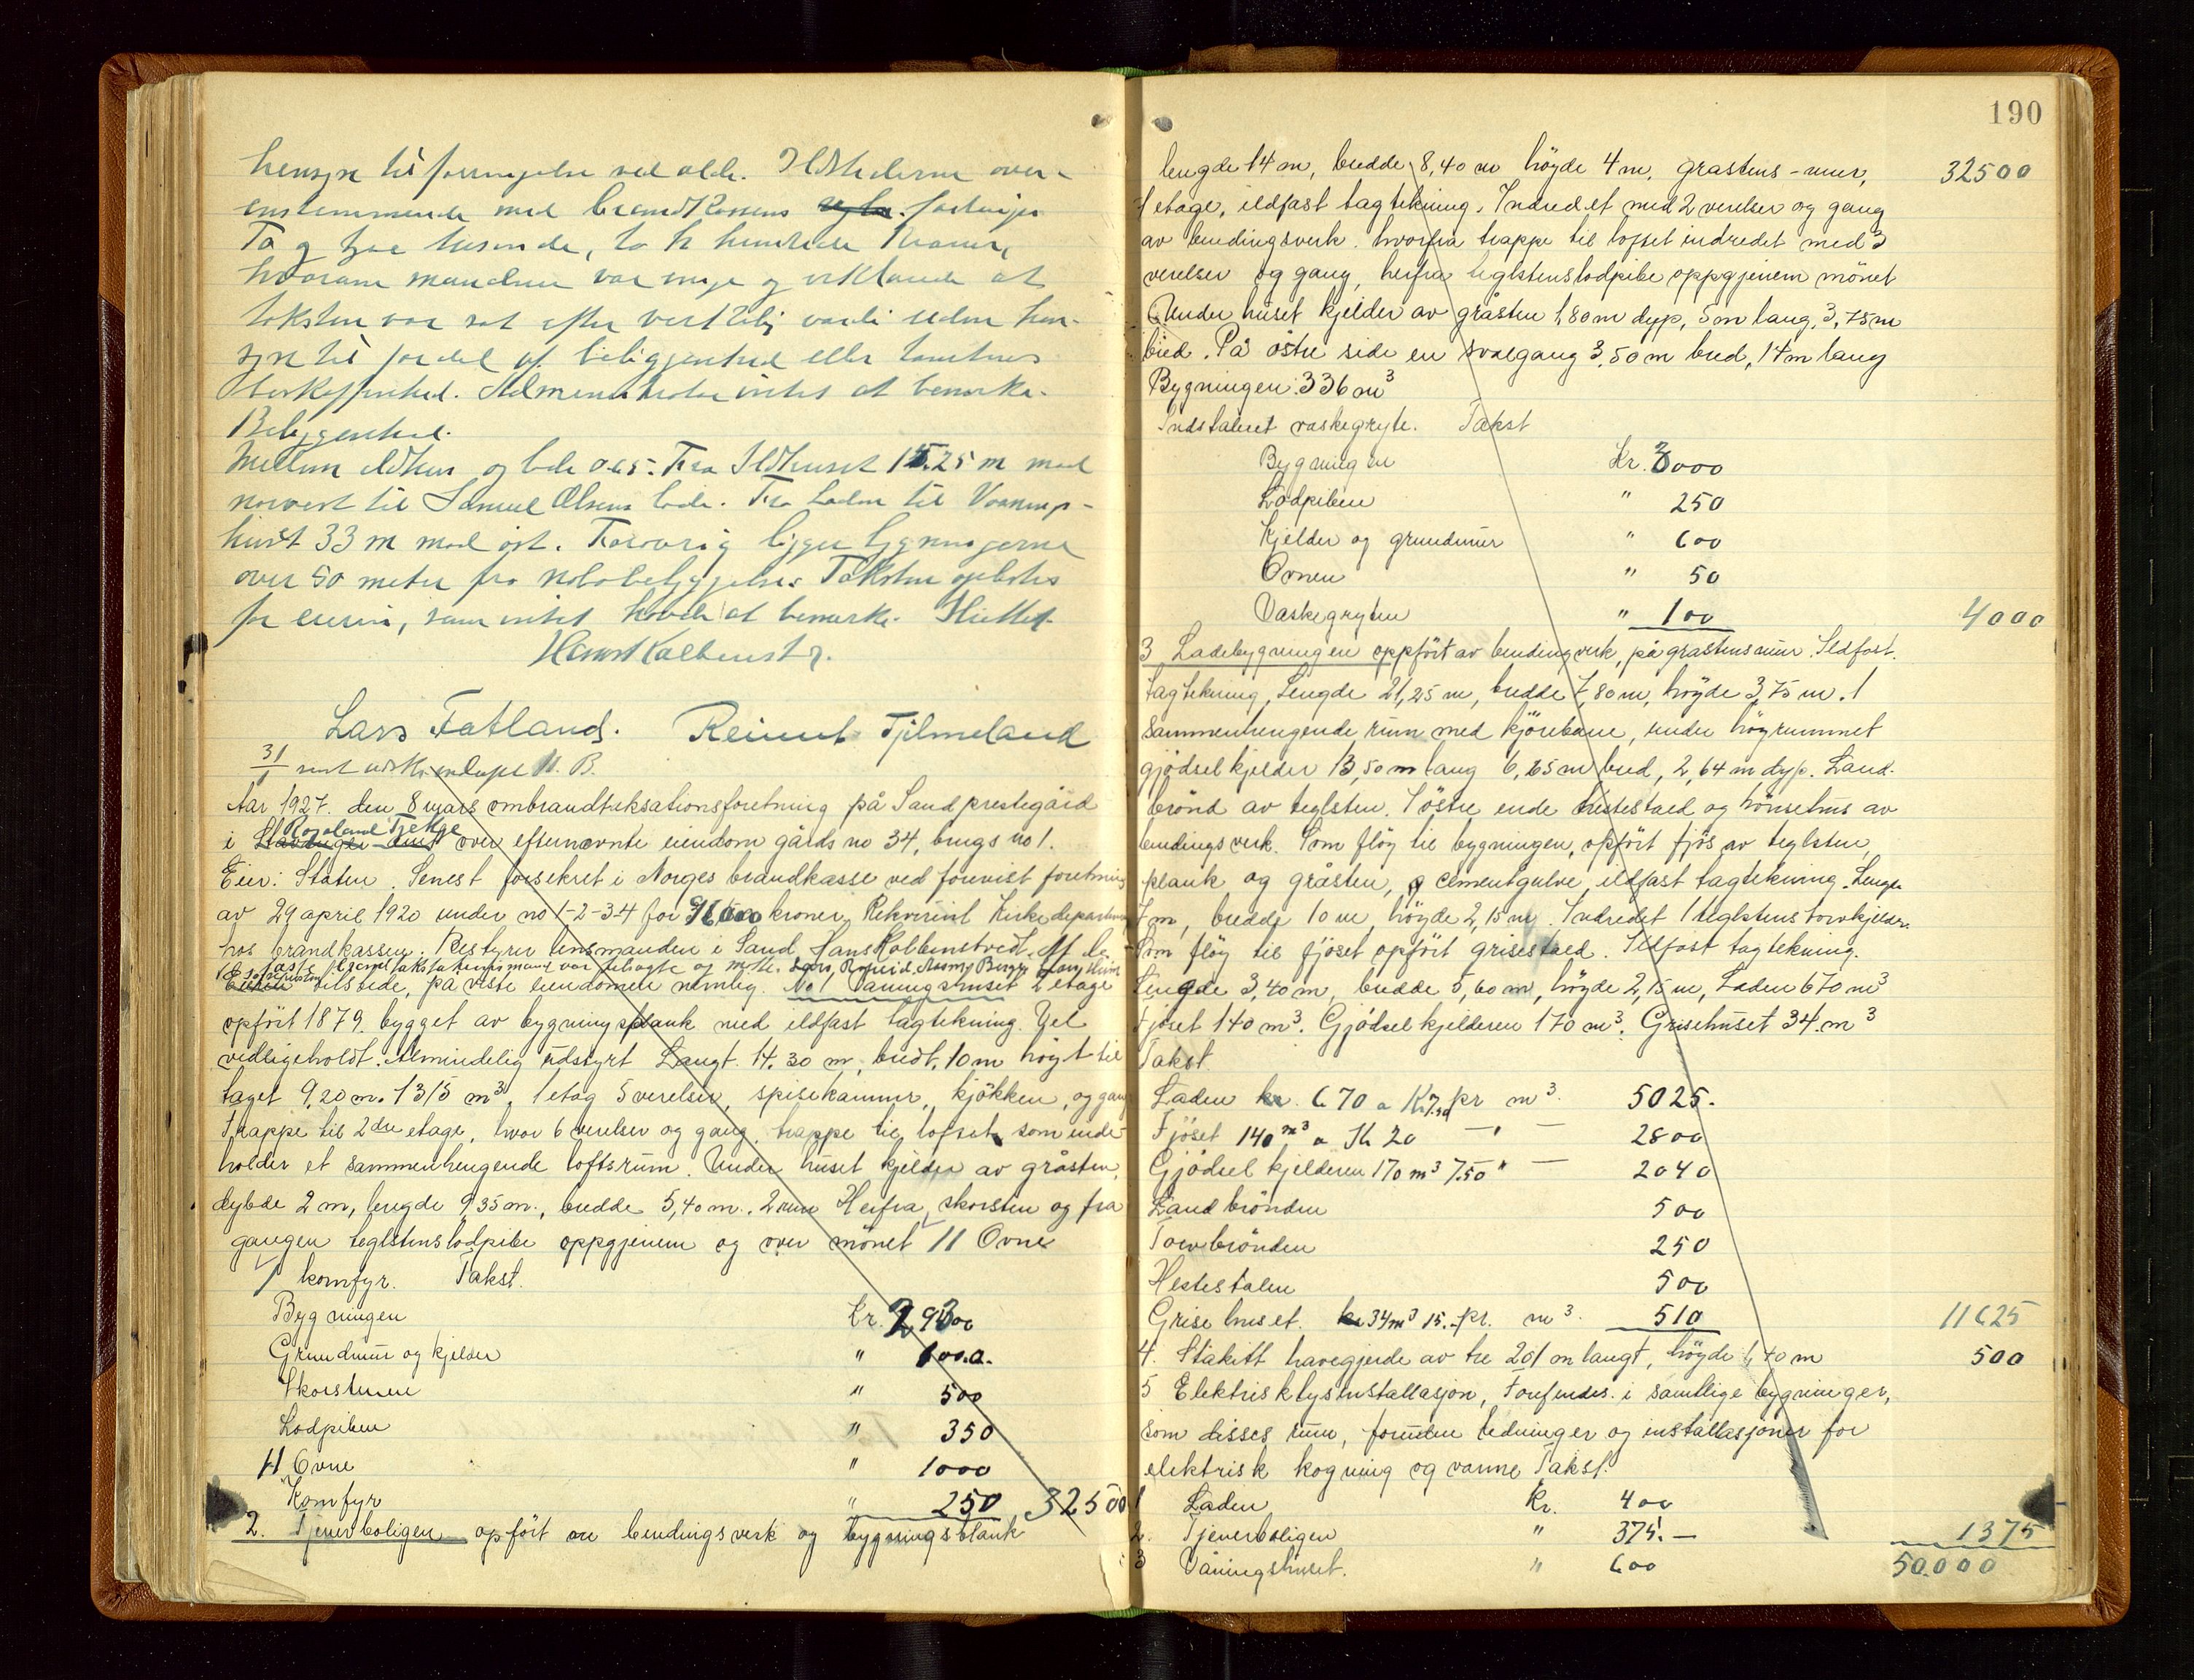 hensyn til forringelse ved elde. Ildstederne over-
ensstemmende med brandkassens forskrifter
To og tusende, to hundrede kroner,
hvorom mændene var enige og erklærede at
taksten var sat efter verkelig værdi uden hen-
syn til fordel af beliggenhed eller tomtens
beskaffenhed. Administrator intet at bemerke.
Beliggenhed.
Mellem ildhus og lade 0.65. Fra Ildhuset 15.25 m mod
norvest til Samuel Olsens lade. Fra laden til Vaanings-
huset 33 m mod øst. Forøvrig ligger bygningerne
over 50 meter fra nabobebyggelse. Taksten oplæstes
for eieren, som intet havde at bemerke. Sluttet
Hans Kolbenstv.
Lars Fatland. Reinert Tjelmeland
31/1 sent utskr. N. B.
Aar 1927. den 8 mars ombrandtaksationsforetning på Sand prestegård
Rogaland Fylke
i Stavanger amt over efternevnte eiendom gårds no 34, brugs no 1.
Eier: Staten. Senest forsekret i Norges brandkasse ved forevist foretning
av 29 april 1920 under no 1-2-3-4 for kroner. Rekvirent Kirkedepartem
hos brandkassen. Bestyrer lensmanden i Sand Hans Kolbenstvedt. Af
taksationsmænd var
tilstede, på viste eiendomen nemlig. No 1 Våningshuset 2 etage
opført 1879. bygget av bygningsplank med ildfast tagtekning. Vel
vedligeholdt. Almindelig udstyrt Langt. 14.30 m, bredt. 10 m høyt til
taget 9,20 m. 1315 m³, 1 etag 5 verelser, spisekammer, kjøkken, og gang
Trappe til 2dre etage, hvor 6 verelser og gang, trappe til loftet som inde-
holder et sammenhengende loftsrum. Under huset kjelder av gråsten,
dybde 2 m, lengde 9,35 m., bredde 5,40 m. 2 rum Herfra skorsten og fra
gangen teglstenslodpibe oppgjenem og over mønet 11 Ovne
1 komfyr. Takst.
Bygningen Kr. 29300
Grundmur og kjelder "
Skorstenen " 500
Lodpiben " 350
11 Ovne " 1000
Komfyr " 250 32500
2. Tjenerboligen opført av bendingsverk og bygningsplank
190
lengde 14 m, bredde 8,40 m høyde 4 m, grastens-mur, 32500
1 etage, ildfast tagtekning. Indredet med 2 verelser og gang
av bendingsverk. hvorfra trappe til loftet indredet med 3
verelser og gang, herfra teglstenslodpibe oppgjenem mønet
Under huset kjelder av gråsten 1,80 m dyp, 5 m lang, 3,75 m
bred. På østre side en svalgang 3,50 m bred, 14 m lang
Bygningen 336 m³
Indstaleret vaskegryte. Takst
Bygningen Kr. 3000
Lodpiben " 250
Kjelder og grundmur " 600
Ovnen " 50
Vaskegryten " 100 4000
3 Ladebygningen oppført av bendingverk, på grastensmur. Ildfast.
tagtekning, Lengde 21,25 m, bredde 7,80 m, høyde 3,75 m. 1
sammenhengende rum med kjørebane, under høyrummet
gjødselkjelder 13,50 m lang 6,65 m bred, 2,64 m dyp. Land-
brønd av teglsten. I østre ende hestestald og hønsehus av
bendingsverk. Som fløy til bygningen, opført fjøs av teglsten,
plank og gråsten, cementgulve, ildfast tagtekning. Lengde
7 m, bredde 10 m, høyde 2,15 m. Indredet 1 teglstens torvkjelder.
Som fløy til fjøset opført grisestald. Ildfast tagtekning.
Lengde 3,40 m, bredde 5,60 m, høyde 2,15 m, Laden 670 m³
Fjøset 140 m³. Gjødselkjelderen 170 m³. Grisehuset 34. m³
Takst.
Laden kr. 670 a Kr 7.50 pr m³. 5025.
Fjøset 140 m³ a Kr 20 - " - 2800
Gjødselkjelderen 170 m³ 7.50 " - 2040
Landbrønden 500
Torvbrønden 250
Hestestalen 500
Grisehuset. 34 m³ 15.- pr. m³. 510 11625
4. Stakitt havegjerde av tre 201 m langt, høyde 1,40 m 500
5 Elektrisk lysinstallasjon, Forefindes i samtlige bygninger,
som disses rum, foruden ledninger og installasjoner for
elektrisk kogning og varme Takst.
1 Laden Kr. 400
2. Tjenerboligen " 375.- 1375
3 Våningshuset. " 600 50.000